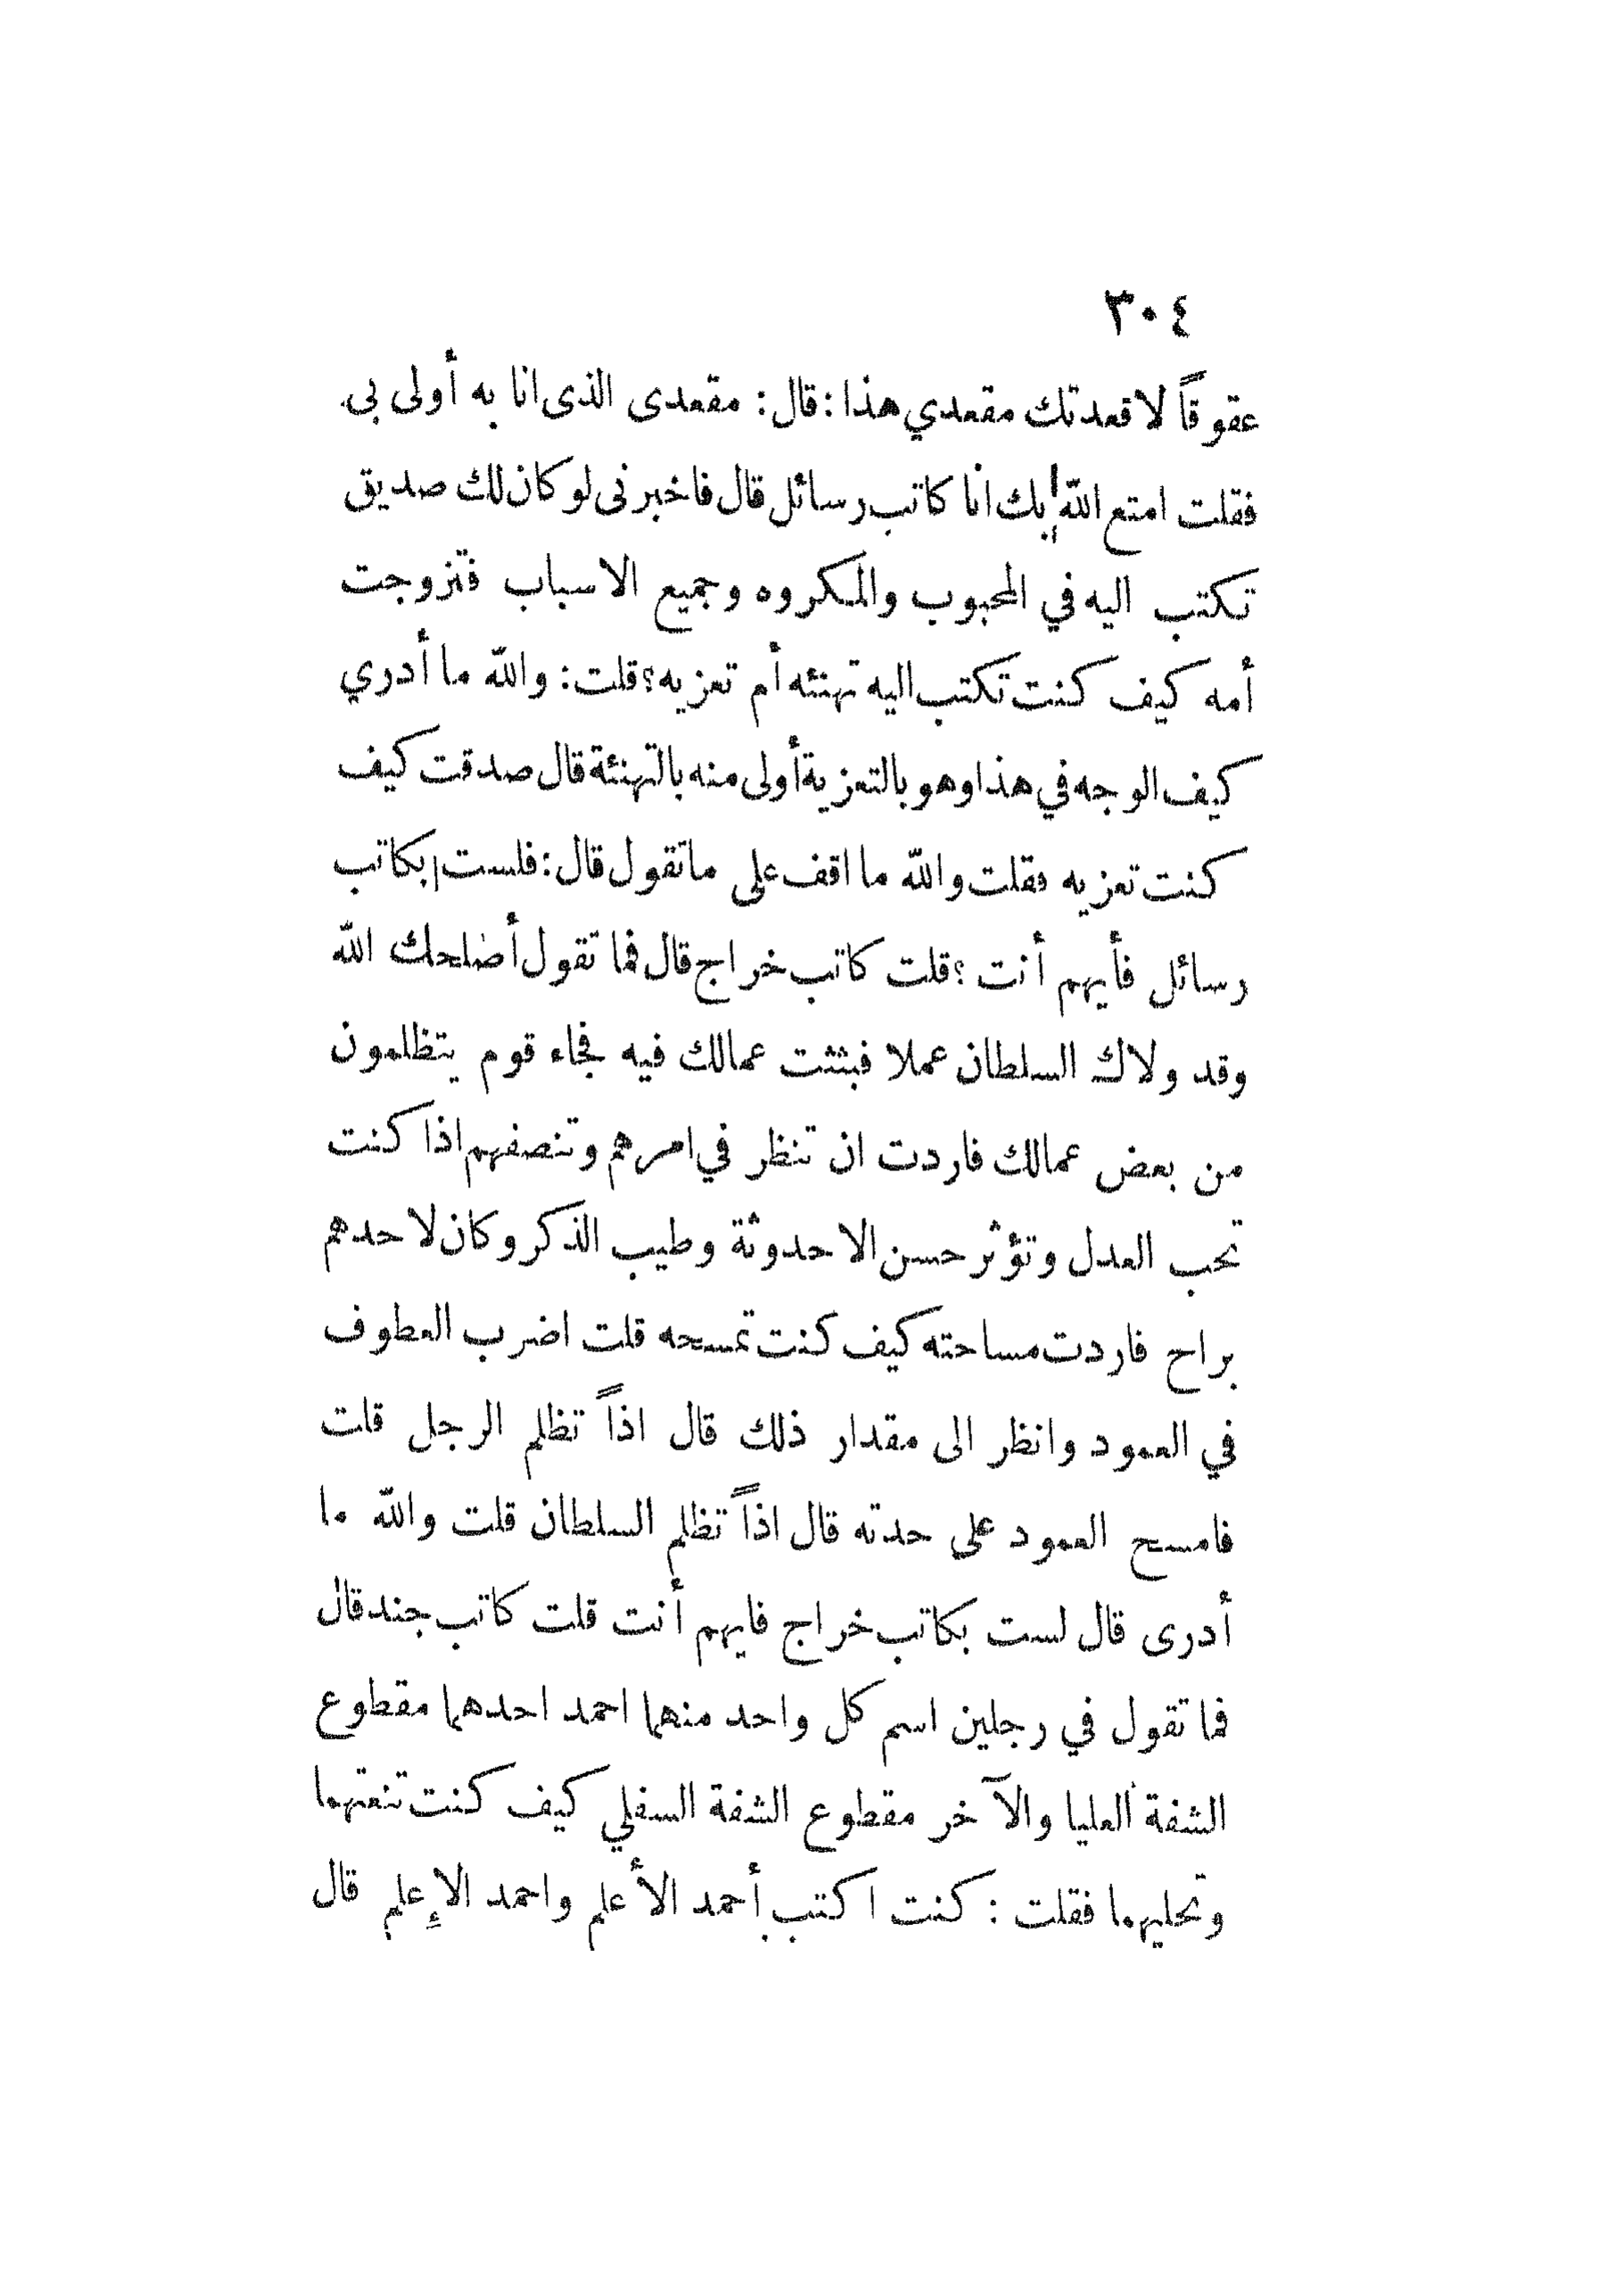 ٣٠٤
عقوقاً لاقعدتك مقعدي هذا : قال : مقعدى الذى انا به أولى بى
فقلت امتع الله بك انا كاتب رسائل قال فاخبرنى لو كان لك صديق
تكتب اليه في المحبوب والمكروه وجميع الاسباب فتزوجت
أمه كيف كنت تكتب اليه تهنئه أم تعزيه؟ قلت: والله ما أدري
كيف الوجه في هذا وهو بالتعزية أولى منه بالتهنئة قال صدقت كيف
كنت تعزيه فقلت والله ما اقف على ما تقول قال: فلست بكاتب
رسائل فأيهم أنت ؟ قلت كاتب خراج قال فما تقول أصلحك الله
وقد ولاك السلطان عملا فبثثت عمالك فيه فجاء قوم يتظلمون
من بعض عمالك فاردت ان تنظر في امرهم وتنصفهم اذا كنت
تحب العدل وتؤثر حسن الاحدوثة وطيب الذكر وكان لاحدهم
براح فاردت مساحته كيف كنت تمسحه قلت اضرب العطوف
في العمود وانظر الى مقدار ذلك قال اذاً تظلم الرجل قلت
فامسح العمود على حدته قال اذاً تظلم السلطان قلت والله ما
أدرى قال لست بكاتب خراج فايهم أنت قلت كاتب جند قال
فما تقول في رجلين اسم كل واحد منهما احمد احدهما مقطوع
الشفة العليا والآخر مقطوع الشفة السفلي كيف كنت تنعتهما
وتحليهما فقلت : كنت اكتب أحمد الأعلم واحمد الإعلم قال